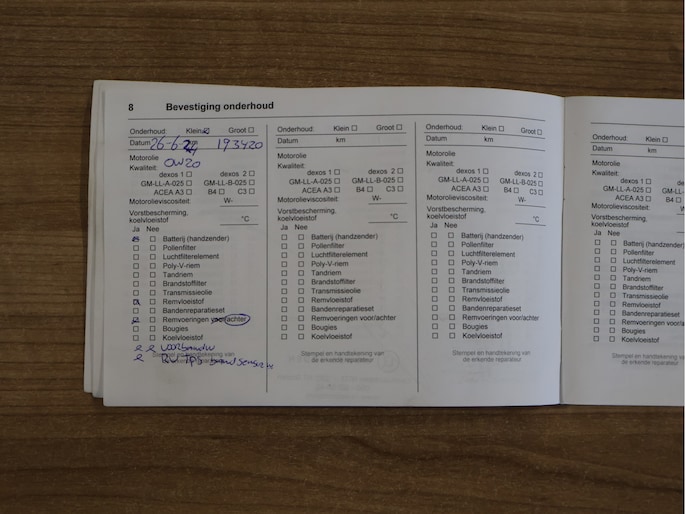 8 Bevestiging onderhoud
Onderhoud: Klein ☒ Groot ☐
Datum 26-6-24 193420
Motorolie
0W20
Kwaliteit:
dexos 1 ☐ dexos 2 ☐
GM-LL-A-025 ☐ GM-LL-B-025 ☐
ACEA A3 ☐ B4 ☐ C3 ☐
Motorolieviscositeit: W-
Vorstbescherming,
koelvloeistof °C
Ja Nee
☒ ☐ Batterij (handzender)
☐ ☐ Pollenfilter
☐ ☐ Luchtfilterelement
☐ ☐ Poly-V-riem
☐ ☐ Tandriem
☐ ☐ Brandstoffilter
☐ ☐ Transmissieolie
☒ ☐ Remvloeistof
☐ ☐ Bandenreparatieset
☒ ☐ Remvoeringen voor/achter
☐ ☐ Bougies
☐ ☐ Koelvloeistof
Stempel en handtekening van
de erkende reparateur
Onderhoud: Klein ☐ Groot ☐
Datum km
Motorolie
Kwaliteit:
dexos 1 ☐ dexos 2 ☐
GM-LL-A-025 ☐ GM-LL-B-025 ☐
ACEA A3 ☐ B4 ☐ C3 ☐
Motorolieviscositeit: W-
Vorstbescherming,
koelvloeistof °C
Ja Nee
☐ ☐ Batterij (handzender)
☐ ☐ Pollenfilter
☐ ☐ Luchtfilterelement
☐ ☐ Poly-V-riem
☐ ☐ Tandriem
☐ ☐ Brandstoffilter
☐ ☐ Transmissieolie
☐ ☐ Remvloeistof
☐ ☐ Bandenreparatieset
☐ ☐ Remvoeringen voor/achter
☐ ☐ Bougies
☐ ☐ Koelvloeistof
Stempel en handtekening van
de erkende reparateur
Onderhoud: Klein ☐ Groot ☐
Datum km
Motorolie
Kwaliteit:
dexos 1 ☐ dexos 2 ☐
GM-LL-A-025 ☐ GM-LL-B-025 ☐
ACEA A3 ☐ B4 ☐ C3 ☐
Motorolieviscositeit: W-
Vorstbescherming,
koelvloeistof °C
Ja Nee
☐ ☐ Batterij (handzender)
☐ ☐ Pollenfilter
☐ ☐ Luchtfilterelement
☐ ☐ Poly-V-riem
☐ ☐ Tandriem
☐ ☐ Brandstoffilter
☐ ☐ Transmissieolie
☐ ☐ Remvloeistof
☐ ☐ Bandenreparatieset
☐ ☐ Remvoeringen voor/achter
☐ ☐ Bougies
☐ ☐ Koelvloeistof
Stempel en handtekening van
de erkende reparateur
Onderhoud: Klein ☐
Datum km
Motorolie
Kwaliteit:
dexos 1 ☐
GM-LL-A-025 ☐ GM-LL-B
ACEA A3 ☐ B4 ☐
Motorolieviscositeit: W-
Vorstbescherming,
koelvloeistof
Ja Nee
☐ ☐ Batterij (handzender)
☐ ☐ Pollenfilter
☐ ☐ Luchtfilterelement
☐ ☐ Poly-V-riem
☐ ☐ Tandriem
☐ ☐ Brandstoffilter
☐ ☐ Transmissieolie
☐ ☐ Remvloeistof
☐ ☐ Bandenreparatieset
☐ ☐ Remvoeringen voor
☐ ☐ Bougies
☐ ☐ Koelvloeistof
Stempel en handtekening
de erkende reparateur